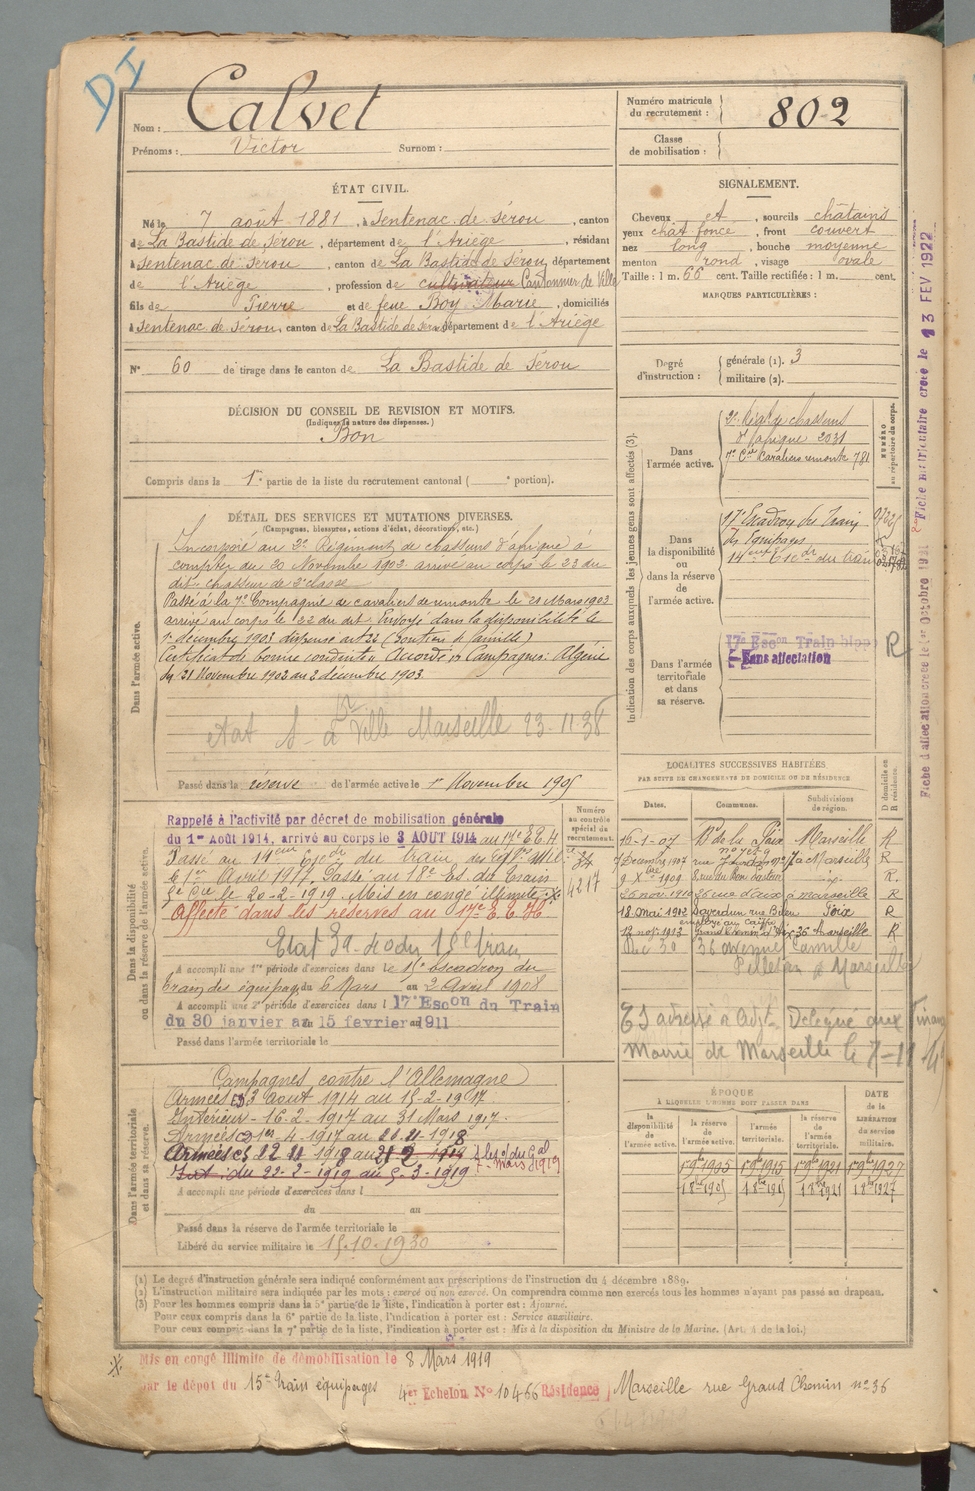 DI
Nom : Calvet
Prénoms : Victor Surnom :
Numéro matricule du recrutement : 802
Classe de mobilisation :
ÉTAT CIVIL.
Né le 7 août 1881, à Sentenac de Sérou, canton
de La Bastide de Sérou, département de l'Ariège, résidant
à Sentenac de Sérou, canton de La Bastide de Sérou, département
de l'Ariège, profession de cultivateur Cantonnier de Ville
fils de Pierre et de feue Boy Marie, domiciliés
à Sentenac de Sérou, canton de La Bastide de Sérou département de l'Ariège
N° 60 de tirage dans le canton de La Bastide de Sérou
SIGNALEMENT.
Cheveux et, sourcils châtains
yeux chat foncé, front couvert
nez long, bouche moyenne
menton rond, visage ovale
Taille : 1 m. 66 cent. Taille rectifiée : 1 m. cent.
MARQUES PARTICULIÈRES :
Degré d'instruction : générale (1). 3
militaire (2).
DÉCISION DU CONSEIL DE REVISION ET MOTIFS.
(Indiquer la nature des dispenses.)
Bon
Compris dans la 1re partie de la liste du recrutement cantonal ( e portion).
DÉTAIL DES SERVICES ET MUTATIONS DIVERSES.
(Campagnes, blessures, actions d'éclat, décorations, etc.)
Dans l'armée active.
Incorporé au 2e Régiment de chasseurs d'afrique à
compter du 20 Novembre 1902. arrivé au corps le 23 du
dit. chasseur de 2e classe
Passé à la 7e Compagnie de cavaliers de remonte le 21 Mars 1903
arrivé au corps le 22 du dit. Envoyé dans la disponibilité le
1er décembre 1903 dispensé art 22 (Soutien de famille)
Certificat de bonne conduite « Accordé ». Campagnes : Algérie
du 21 Novembre 1902 au 2 décembre 1903.
Ville Marseille 23-11-38
Passé dans la réserve de l'armée active le 1er Novembre 1905
Indication des corps auxquels les jeunes gens sont affectés (3).
NUMÉRO au répertoire du corps.
Dans l'armée active.
2e Régt de chasseurs
d'afrique 2031
7e Cie Cavaliers remonte 781
Dans la disponibilité ou dans la réserve de l'armée active.
17e Escadron du Train
des Equipages
Dans l'armée territoriale et dans sa réserve.
17e Escon Train
Sans affectation R
Fiche d'affection créée le 1er Octobre 1921 Fiche matriculaire créée le 13 FEV 1922
Dans la disponibilité ou dans la réserve de l'armée active.
Numéro au contrôle spécial du recrutement.
4217
Rappelé à l'activité par décret de mobilisation générale
du 1er Août 1914, arrivé au corps le 3 AOUT 1914 au 17e E.T.E.M
Passé au 14eme Escdr du train des Eq. Mil
le 1er Avril 1917. Passé au 18e Es. du Train
le 20-2-1919 Mis en congé illimité
Affecté dans les réserves au 17e E.T.E.M.
A accompli une 1re période d'exercices dans le 15e Escadron du
train des équipages du 6 Mars au 2 Avril 1908
A accompli une 2e période d'exercices dans l 17e Escon du Train
du 30 janvier au 15 fevrier 1911
Passé dans l'armée territoriale le
LOCALITÉS SUCCESSIVES HABITÉES
PAR SUITE DE CHANGEMENTS DE DOMICILE OU DE RÉSIDENCE
Dates. Communes. Subdivisions de région. D domicile ou R résidence.
16-1-07 Bd de la Paix Marseille R
7 Décembre 1907 à Marseille R
9 Xbre 1909 R.
26 nov. 1910 26 rue d'aux à Marseille R
18 mai 1912 Saverdun rue Foix R
12 nov. 1913 Grand Chemin d'Aix 36 Marseille R
36 avenue Camille
Pelletan à Marseille
Délégué aux
Mairie de Marseille le
Dans l'armée territoriale et dans sa réserve.
Campagnes contre l'Allemagne
Armées 3 août 1914 au 15-2-1917
Intérieur - 16-2-1917 au 31 Mars 1917.
Armées 1er-4-1917 au 21-11-1918
Int. du 22-2-1919 au 5-3-1919
A accompli une période d'exercices dans l
du au
Passé dans la réserve de l'armée territoriale le
Libéré du service militaire le 15-10-1930
ÉPOQUE À LAQUELLE L'HOMME DOIT PASSER DANS
la disponibilité de l'armée active. la réserve de l'armée active. l'armée territoriale. la réserve de l'armée territoriale.
DATE de la LIBÉRATION du service militaire.
1 9bre 1905 1 9bre 1915 1 9bre 1921 1 9bre 1927
1 8bre 1905 1 8bre 1915 1 8bre 1921 1 8bre 1927
(1) Le degré d'instruction générale sera indiqué conformément aux prescriptions de l'instruction du 4 décembre 1889.
(2) L'instruction militaire sera indiquée par les mots : exercé ou non exercé. On comprendra comme non exercés tous les hommes n'ayant pas passé au drapeau.
(3) Pour les hommes compris dans la 5e partie de la liste, l'indication à porter est : Ajourné.
Pour ceux compris dans la 6e partie de la liste, l'indication à porter est : Service auxiliaire.
Pour ceux compris dans la 7e partie de la liste, l'indication à porter est : Mis à la disposition du Ministre de la Marine. (Art. 4 de la loi.)
Mis en congé illimité de démobilisation le 8 Mars 1919
par le dépôt du 15e Train équipages 4er Echelon N° 10466 Résidence Marseille rue Grand Chemin n° 36